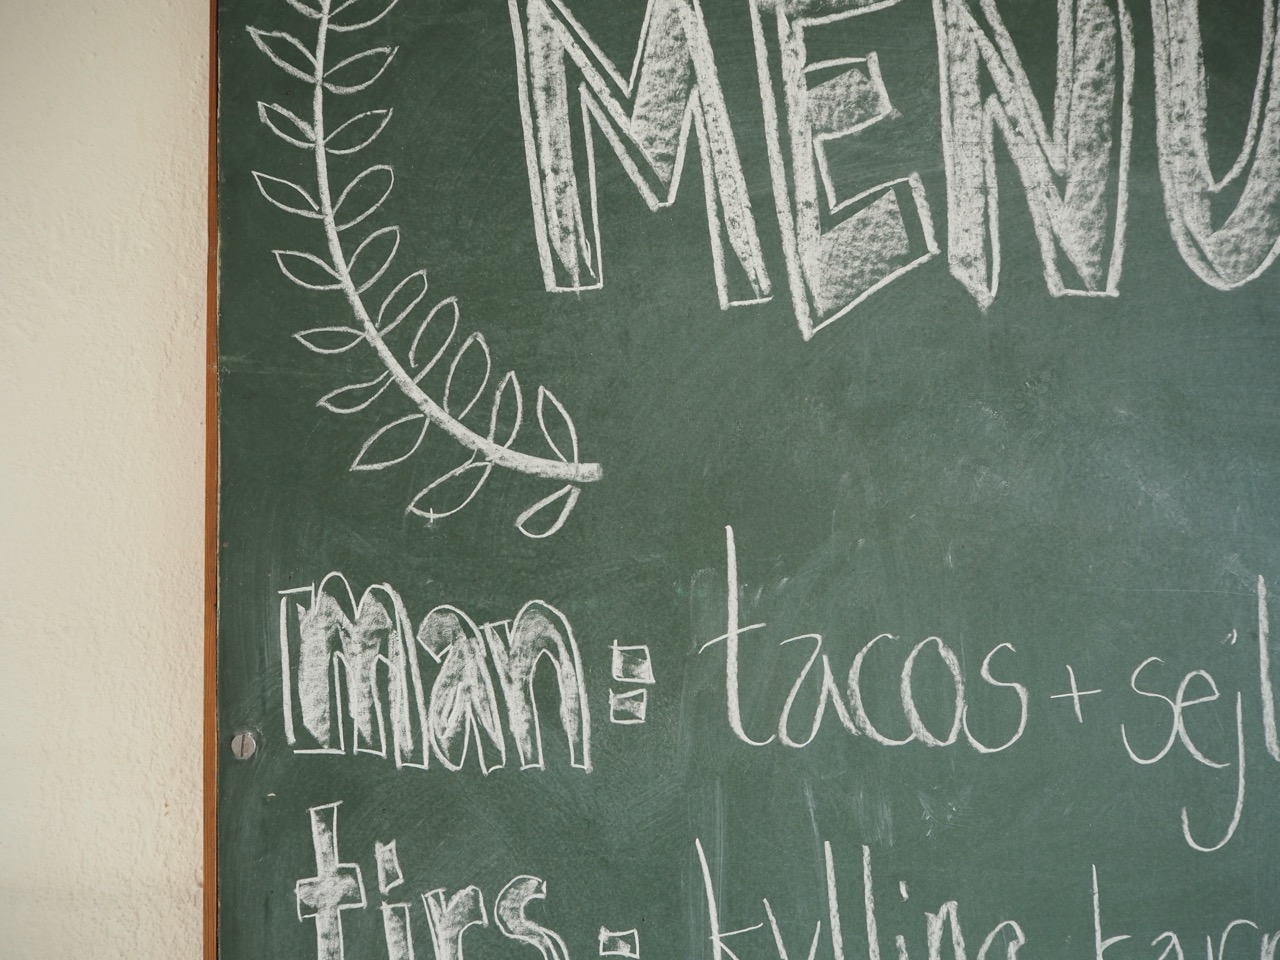 MENU
man: tacos + sejl
tirs: kylling karr